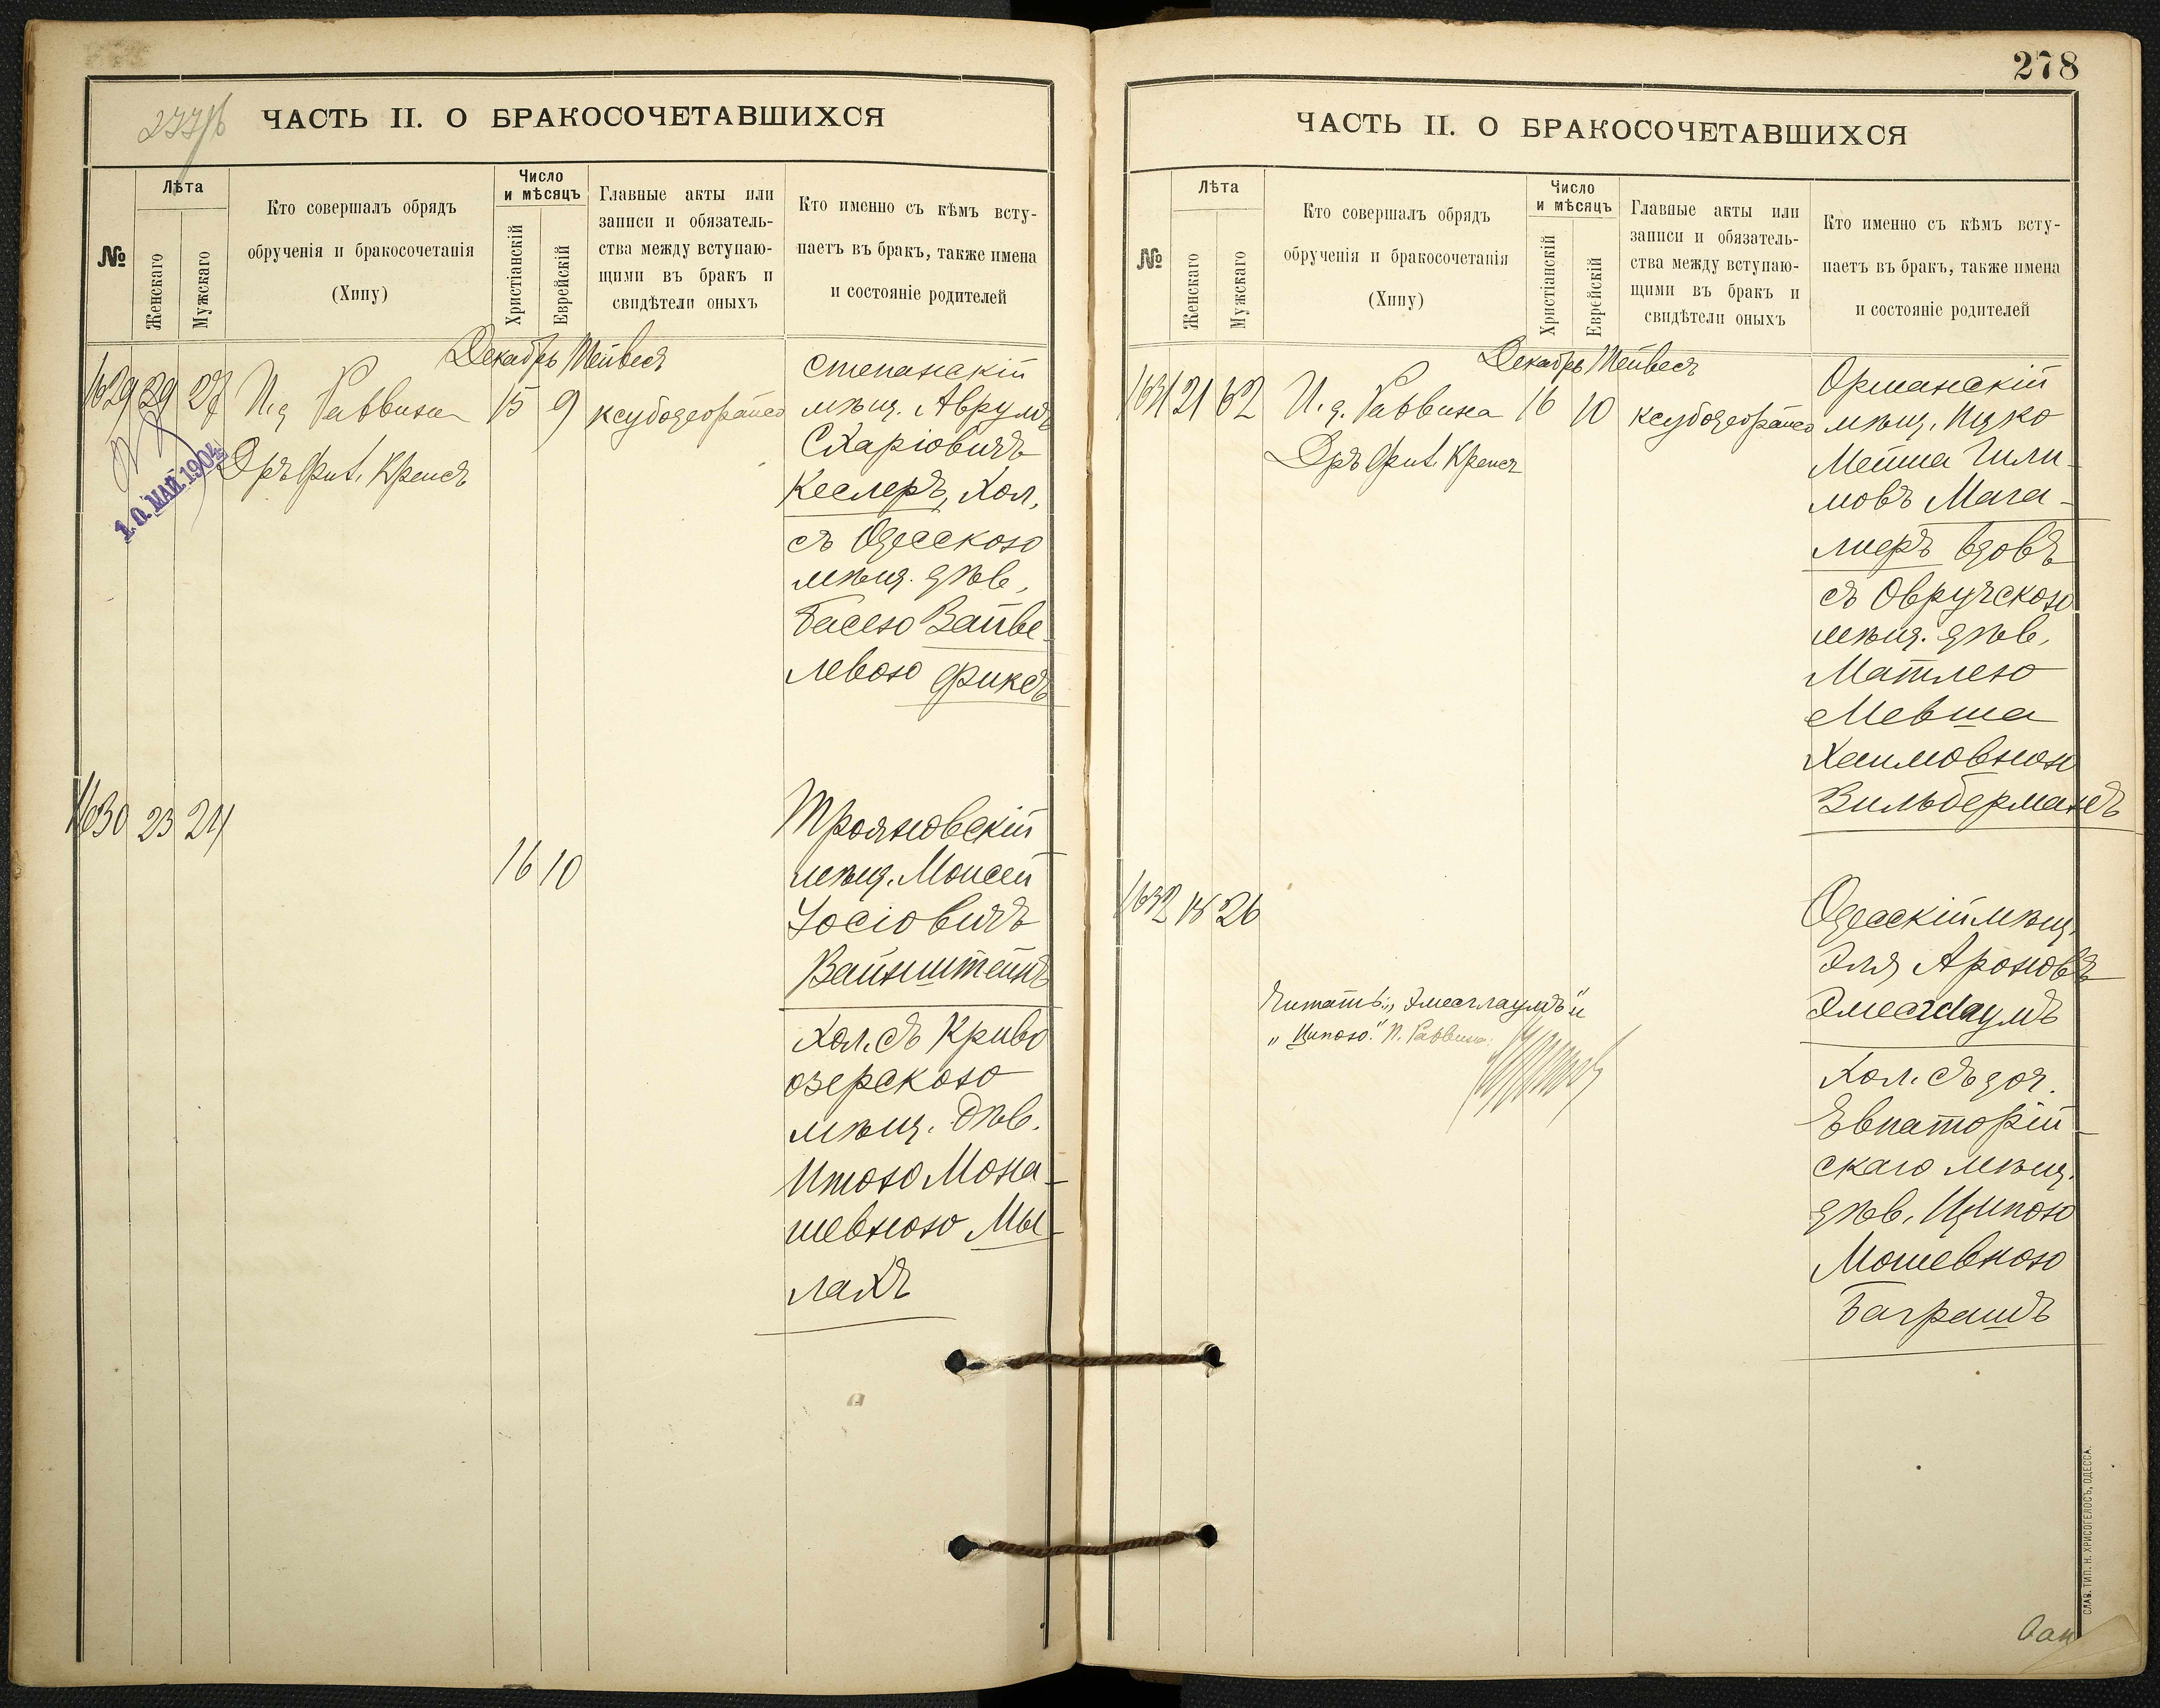 277/б
ЧАСТЬ II. О БРАКОСОЧЕТАВШИХСЯ
№
Лѣта
Женскаго
Мужскаго
Кто совершалъ обрядъ
обрученія и бракосочетанія
(Хипу)
Число
и мѣсяцъ
Христіанскій
Еврейскій
Главные акты или
записи и обязатель-
ства между вступаю-
щими въ бракъ и
свидѣтели оныхъ
Кто именно съ кѣмъ всту-
паетъ въ бракъ, также имена
и состояніе родителей
Декабрь Тейвесъ
1629 29 27 И.д. Раввина 15 9
Д-ръ Фил. Крепсъ
10. МАЙ. 1904
Степанскій
мѣщ. Аврумъ
Схаріовичъ
Кеслеръ, Хол.
съ Одесскою
мѣщ. дѣв.
Басею Вайве-
левою Фиксъ
1630 23 24
16 10
Трояновскій
мѣщ. Моисей
Іосіовичъ
Вайнштейнъ
Хол. съ Криво
озерскою
мѣщ. дѣв.
Итою Мона-
шевною Мы-
лахъ
278
ЧАСТЬ II. О БРАКОСОЧЕТАВШИХСЯ
№
Лѣта
Женскаго
Мужскаго
Кто совершалъ обрядъ
обрученія и бракосочетанія
(Хипу)
Число
и мѣсяцъ
Христіанскій
Еврейскій
Главные акты или
записи и обязатель-
ства между вступаю-
щими въ бракъ и
свидѣтели оныхъ
Кто именно съ кѣмъ всту-
паетъ въ бракъ, также имена
и состояніе родителей
Декабрь Тейвесъ
1631 21 62 И.д. Раввина 16 10
Д-ръ Фил. Крепсъ
Орманскій
мѣщ. Ицко
Мейша Чили-
мовъ Мага-
лиеръ вдовъ
съ Овручскою
мѣщ. дѣв.
Матлею
Мевша
Хаимовною
Вильберманъ
1632 18 26
Одесскій мѣщ.
Эля Ароновъ
Хол. съ доч.
Евпаторій-
скаго мѣщ.
дѣв. Ципою
Мошевною
Баграшъ
Читать: „Эмесглаумъ" и
„Ципою." И. Раввина:
СЛАВ. ТИП. Н. ХРИСОГЕЛОСЪ, ОДЕССА.